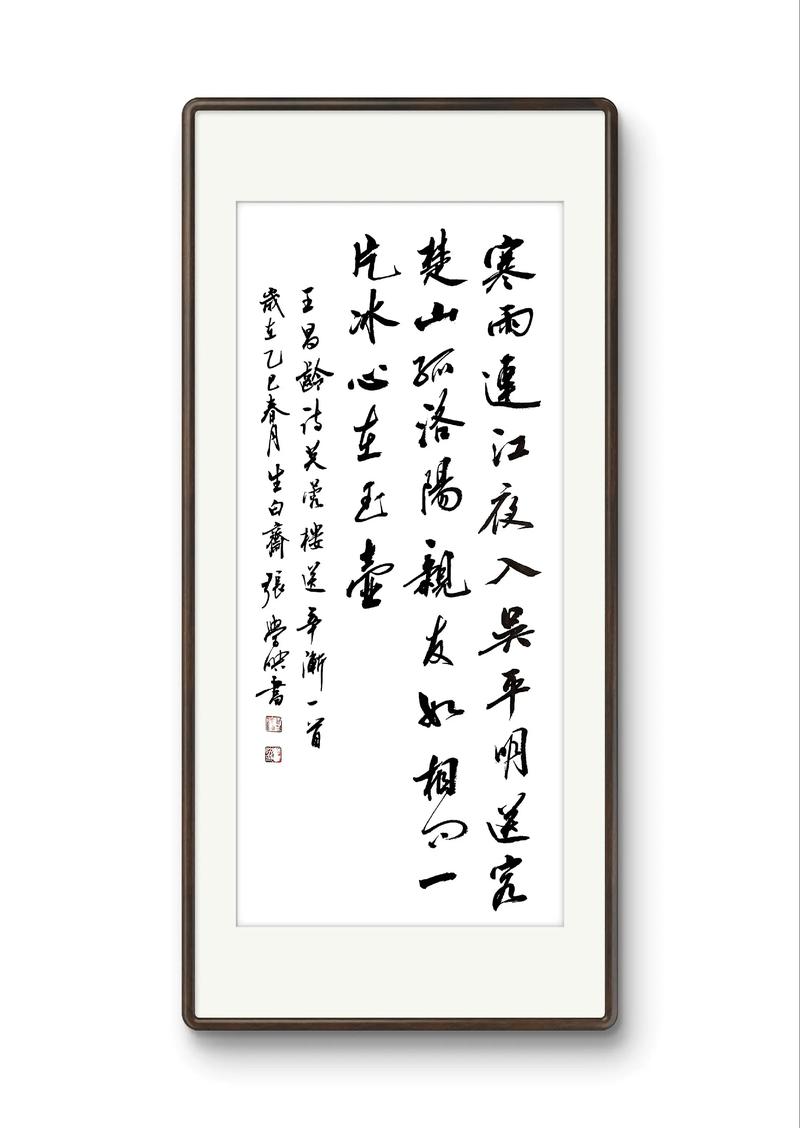 寒雨連江夜入吳平明送客
楚山孤洛陽親友如相問一
片冰心在玉壺
王昌齡詩芙蓉樓送辛漸一首
歲在乙巳春月生白齋張學書